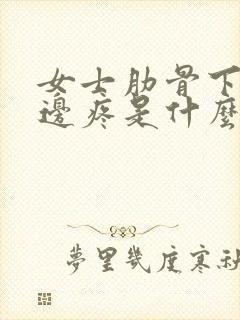 女士肋骨下
邊疼是什麼
夢里幾度寒秋